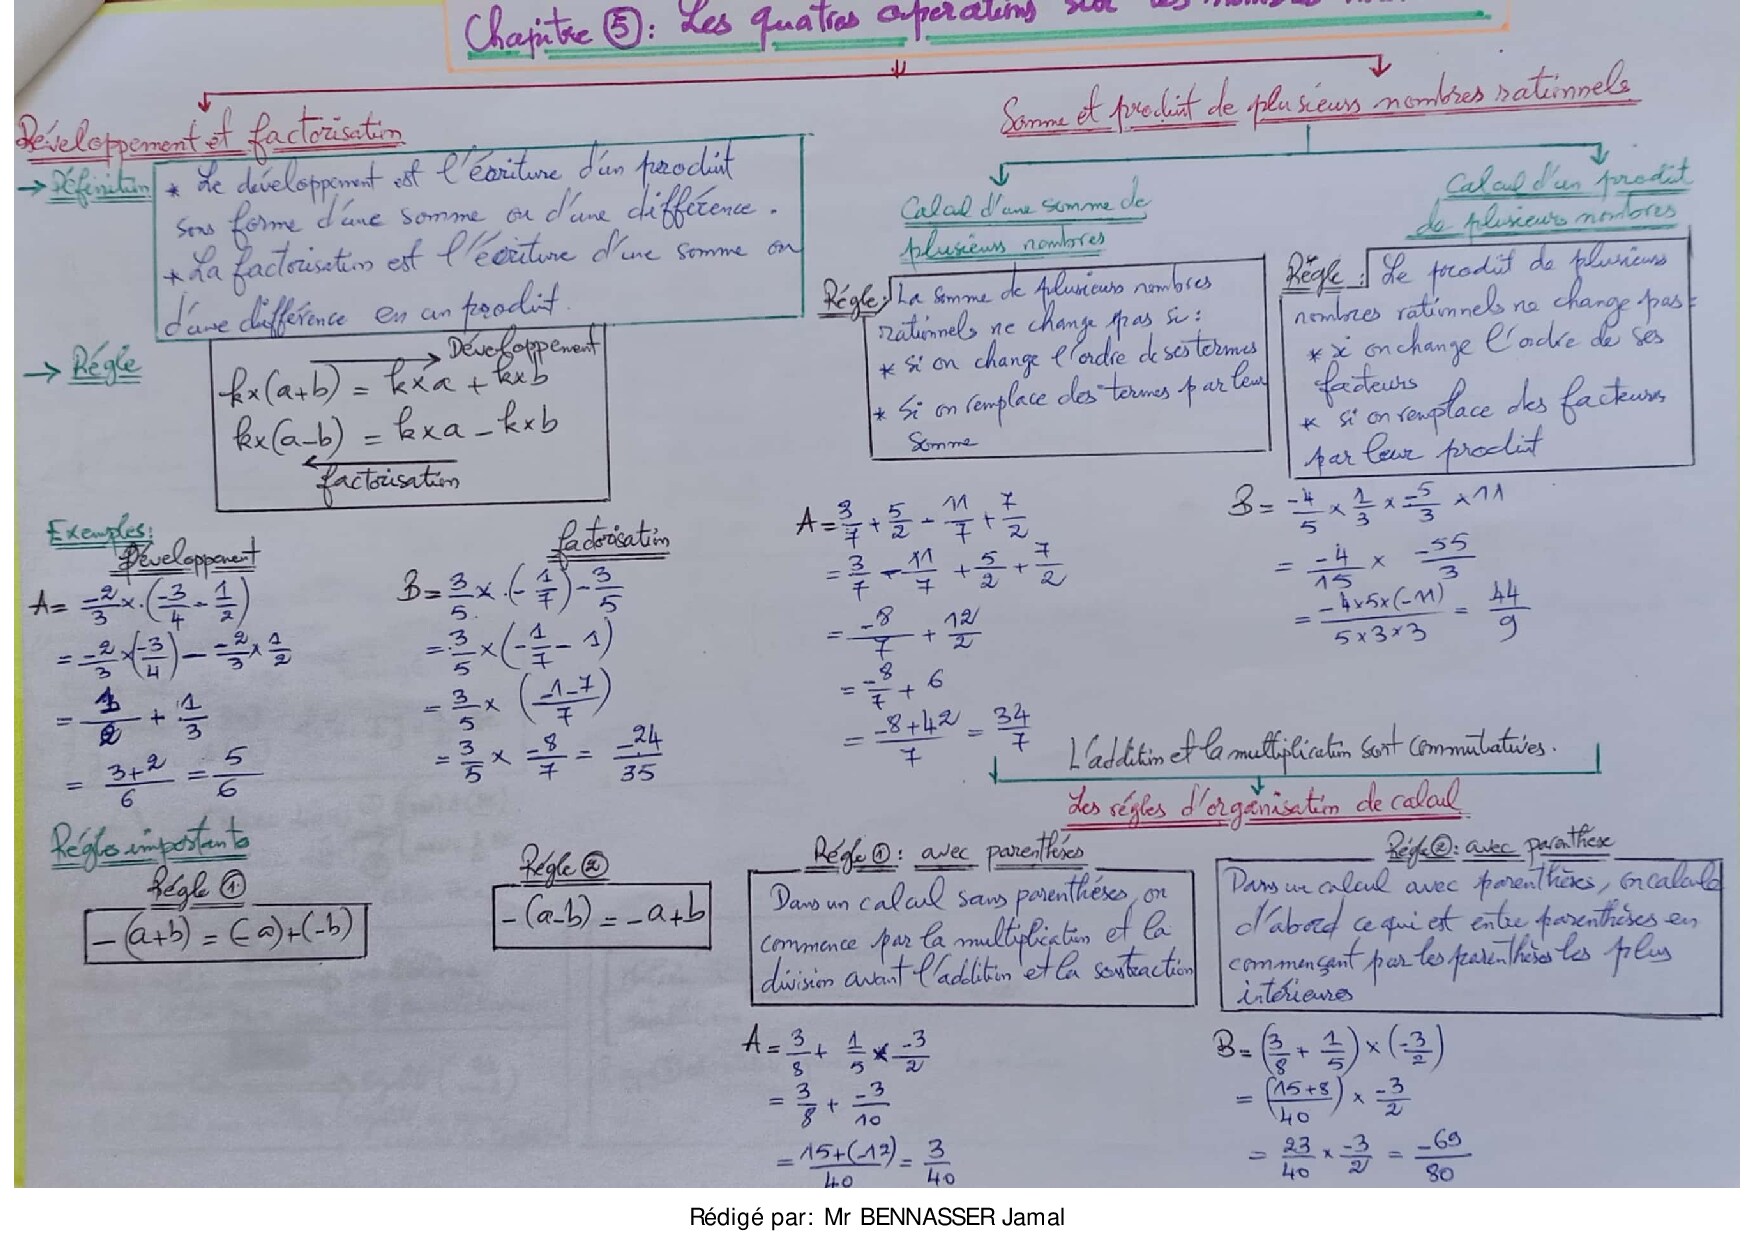 Chapitre ⑤: Les quatres opérations sur les nombres
Développement et factorisation
→ Définition
* Le développement est l'écriture d'un produit
sous forme d'une somme ou d'une différence.
* La factorisation est l'écriture d'une somme ou
d'une différence en un produit.
→ Régle
Développement
k×(a+b) = k×a + k×b
k×(a-b) = k×a - k×b
factorisation
Exemples:
Développement
A= -2/3 × (-3/4 - 1/2)
= -2/3 × (-3/4) - -2/3 × 1/2
= 1/2 + 1/3
= 3+2/6 = 5/6
factorisation
B= 3/5 × (-1/7) - 3/5
= 3/5 × (-1/7 - 1)
= 3/5 × (-1-7/7)
= 3/5 × -8/7 = -24/35
Régles importants
Régle ①
-(a+b) = (-a)+(-b)
Régle ②
-(a-b) = -a+b
Somme et produit de plusieurs nombres rationnels
Calcul d'une somme de
plusieurs nombres
Régle: La somme de plusieurs nombres
rationnels ne change pas si:
* si on change l'ordre de ses termes
* Si on remplace des termes par leur
somme
A= 3/7 + 5/2 - 11/7 + 7/2
= 3/7 - 11/7 + 5/2 + 7/2
= -8/7 + 12/2
= -8/7 + 6
= -8+42/7 = 34/7
Calcul d'un produit
de plusieurs nombres
Régle: Le produit de plusieurs
nombres rationnels ne change pas:
* si on change l'ordre de ses
facteurs
* si on remplace des facteurs
par leur produit
B= -4/5 × 1/3 × -5/3 × 11
= -4/15 × -55/3
= -4×5×(-11)/5×3×3 = 44/9
L'addition et la multiplication sont commutatives.
Les régles d'organisation de calcul
Régle ①: avec parenthéses
Dans un calcul sans parenthéses, on
commence par la multiplication et la
division avant l'addition et la soustraction
A= 3/8 + 1/5 × -3/2
= 3/8 + -3/10
= 15+(-12)/40 = 3/40
Régle ②: avec parenthèse
Dans un calcul avec parenthèses, on calcule
d'abord ce qui est entre parenthèses en
commençant par les parenthèses les plus
intérieures
B= (3/8 + 1/5) × (-3/2)
= (15+8/40) × -3/2
= 23/40 × -3/2 = -69/80
Rédigé par: Mr BENNASSER Jamal